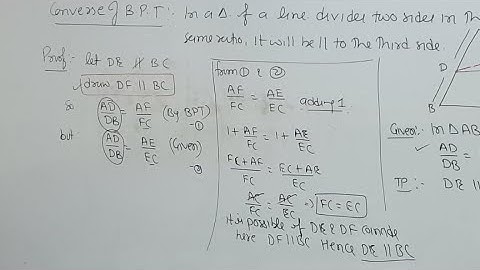 Converse of B.P.T :- In a Δ. if a line divides two sides in th
same ratio, it will be || to the third side.
Proof:- let DE ∦ BC
draw DF || BC
so AD/DB = AF/FC (By BPT) -①
but AD/DB = AE/EC (Given) -②
from ① & ②
AF/FC = AE/EC adding 1
1 + AF/FC = 1 + AE/EC
FC+AF/FC = EC+AE/EC
AC/FC = AC/EC ⇒ FC = EC
it is possible if DE & DF coincide
here DF || BC Hence DE || BC
D
B
Given:- In ΔAB
✓ AD/DB =
TP:- DE |